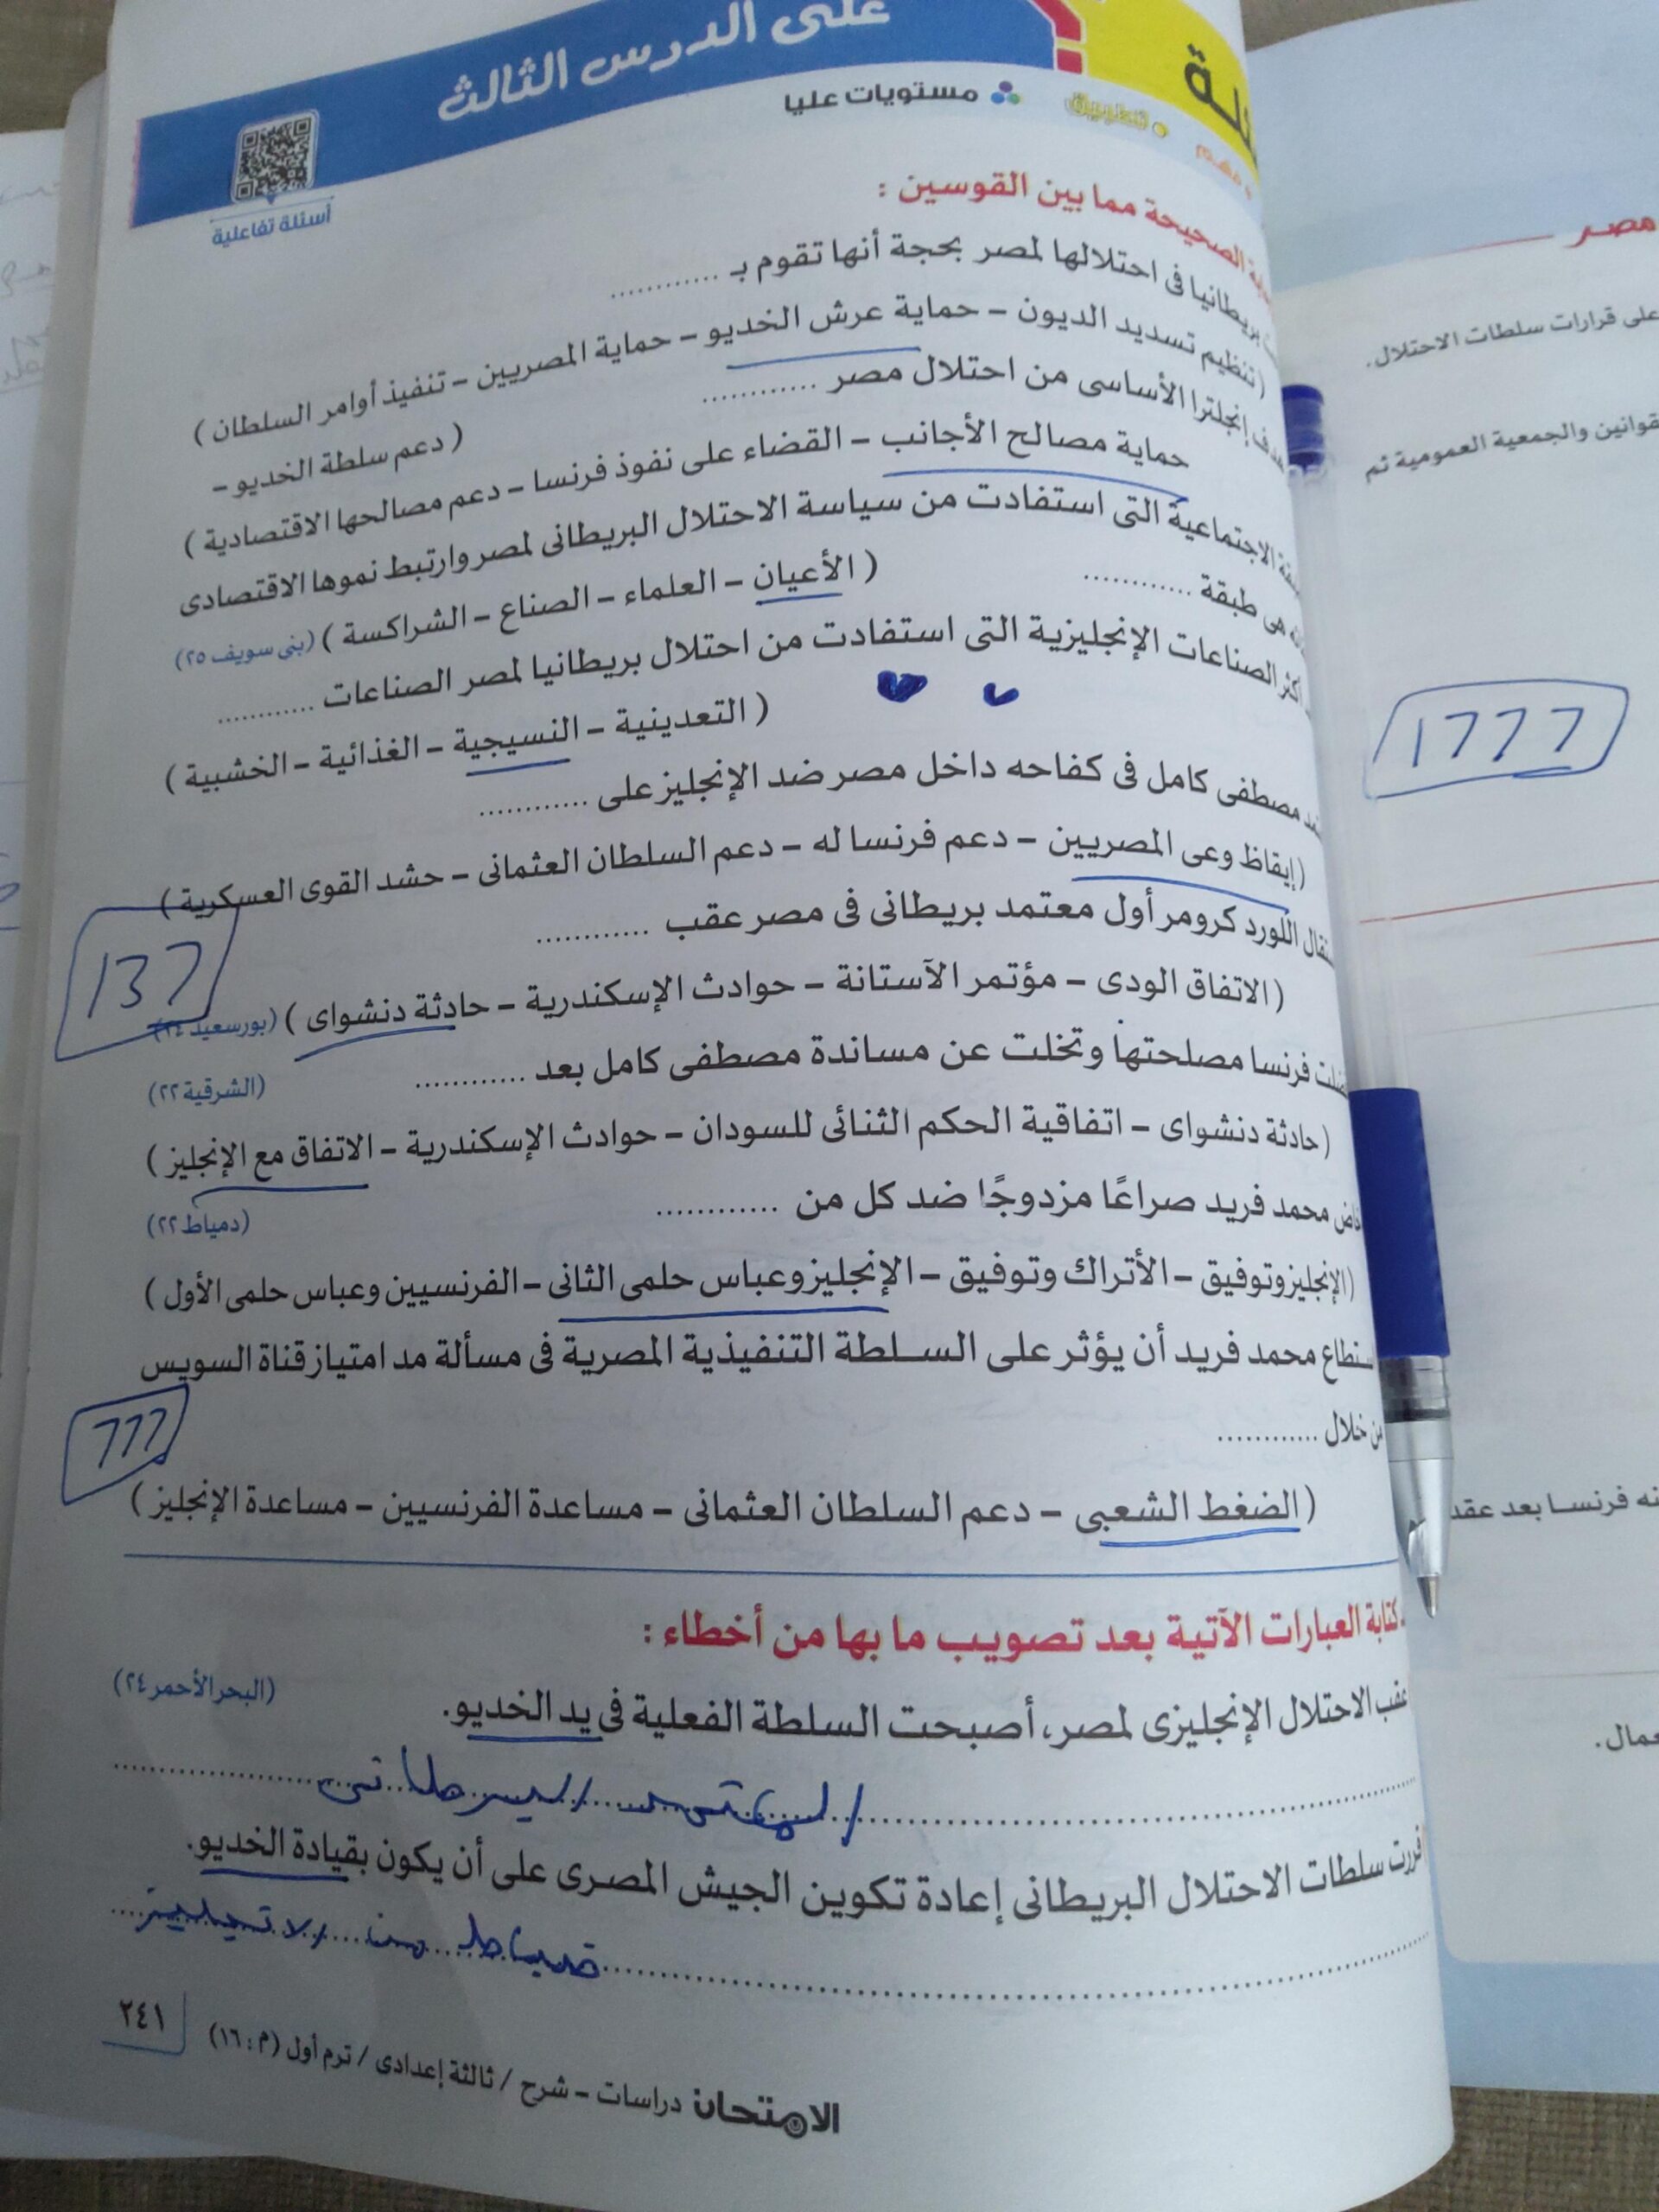 على الدرس الثالث
مستويات عليا
تطبيق
مهم
أسئلة تفاعلية
الصحيحة مما بين القوسين :
بريطانيا فى احتلالها لمصر بحجة أنها تقوم بـ ............
(تنظيم تسديد الديون - حماية عرش الخديو - حماية المصريين - تنفيذ أوامر السلطان )
إنجلترا الأساسى من احتلال مصر ............
( دعم سلطة الخديو -
حماية مصالح الأجانب - القضاء على نفوذ فرنسا - دعم مصالحها الاقتصادية )
الاجتماعية التى استفادت من سياسة الاحتلال البريطانى لمصر وارتبط نموها الاقتصادى
هى طبقة ............
( الأعيان - العلماء - الصناع - الشراكسة ) (بنى سويف ٢٥)
الصناعات الإنجليزية التى استفادت من احتلال بريطانيا لمصر الصناعات ............
( التعدينية - النسيجية - الغذائية - الخشبية )
مصطفى كامل فى كفاحه داخل مصر ضد الإنجليز على ............
(إيقاظ وعى المصريين - دعم فرنسا له - دعم السلطان العثمانى - حشد القوى العسكرية )
اللورد كرومر أول معتمد بريطانى فى مصر عقب ............
(الاتفاق الودى - مؤتمر الآستانة - حوادث الإسكندرية - حادثة دنشواى ) (بورسعيد ٢٤)
فرنسا مصلحتها وتخلت عن مساندة مصطفى كامل بعد ............
(الشرقية ٢٢)
(حادثة دنشواى - اتفاقية الحكم الثنائى للسودان - حوادث الإسكندرية - الاتفاق مع الإنجليز )
محمد فريد صراعًا مزدوجًا ضد كل من ............
(دمياط ٢٢)
(الإنجليز وتوفيق - الأتراك وتوفيق - الإنجليز وعباس حلمى الثانى - الفرنسيين وعباس حلمى الأول )
محمد فريد أن يؤثر على السلطة التنفيذية المصرية فى مسألة مد امتياز قناة السويس
من خلال ............
(الضغط الشعبى - دعم السلطان العثمانى - مساعدة الفرنسيين - مساعدة الإنجليز )
كتابة العبارات الآتية بعد تصويب ما بها من أخطاء :
عقب الاحتلال الإنجليزى لمصر، أصبحت السلطة الفعلية فى يد الخديو.
(البحر الأحمر ٢٤)
سلطات الاحتلال البريطانى إعادة تكوين الجيش المصرى على أن يكون بقيادة الخديو.
ضباط من الانجليز
الامتحان دراسات - شرح / ثالثة إعدادى / ترم أول (م : ١٦)
٢٤١
مصر
على قرارات سلطات الاحتلال.
والجمعية العمومية ثم
فرنسا بعد عقد